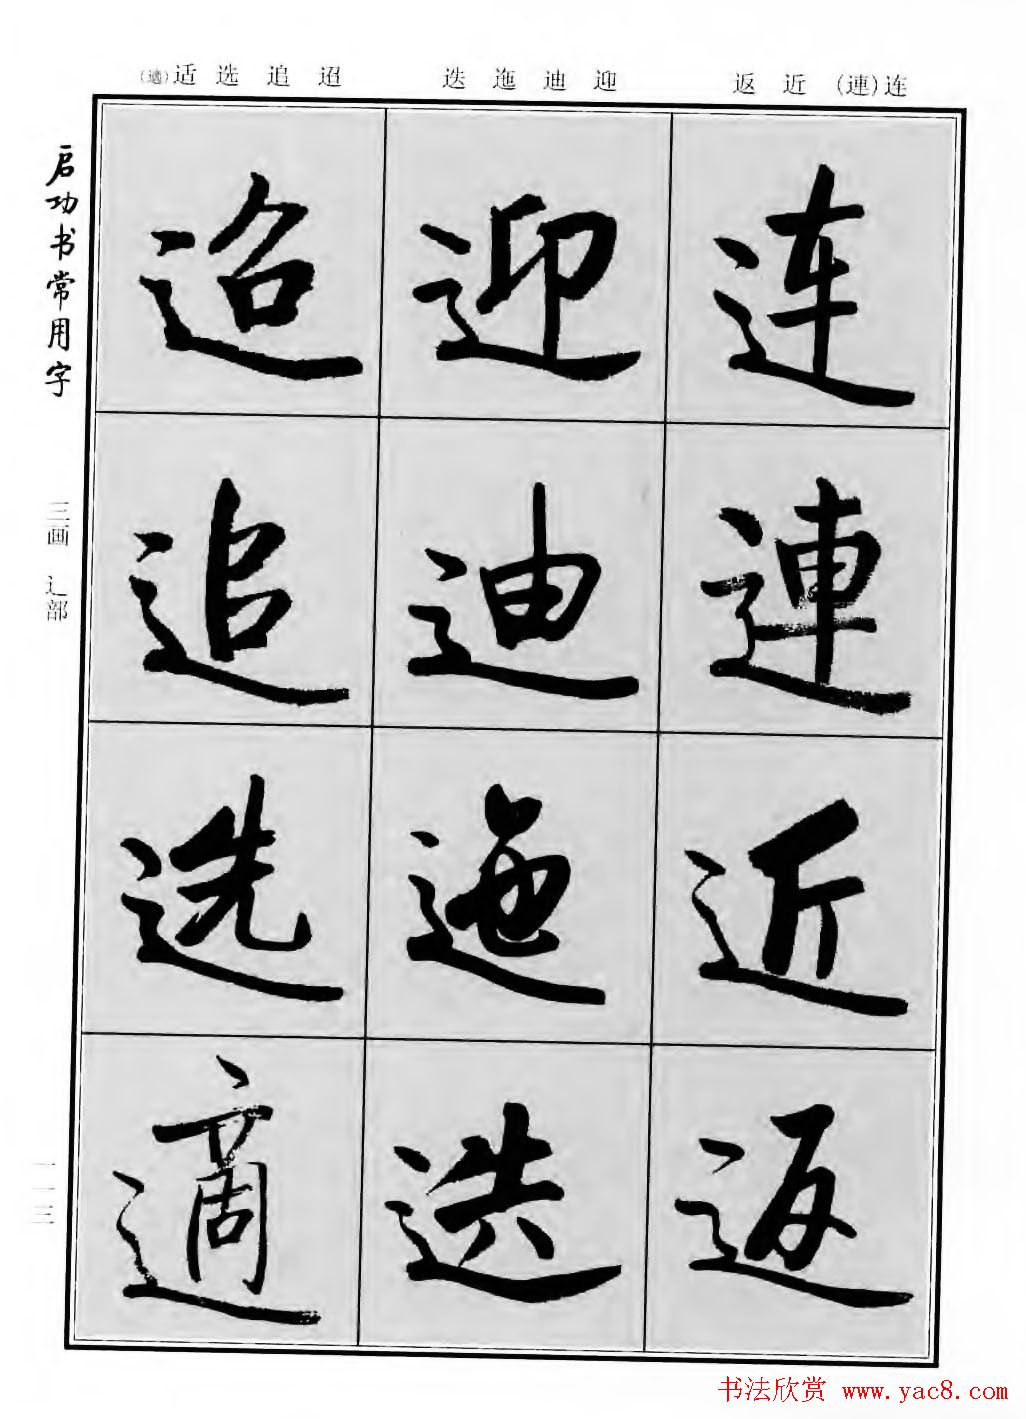 连(連) 近 返
迎 迪 迤 迭
迢 追 选 适(適)
连連近返
迎迪迤迭
迢追选適
启功书常用字
三画 辶部
一一三
书法欣赏 www.yac8.com